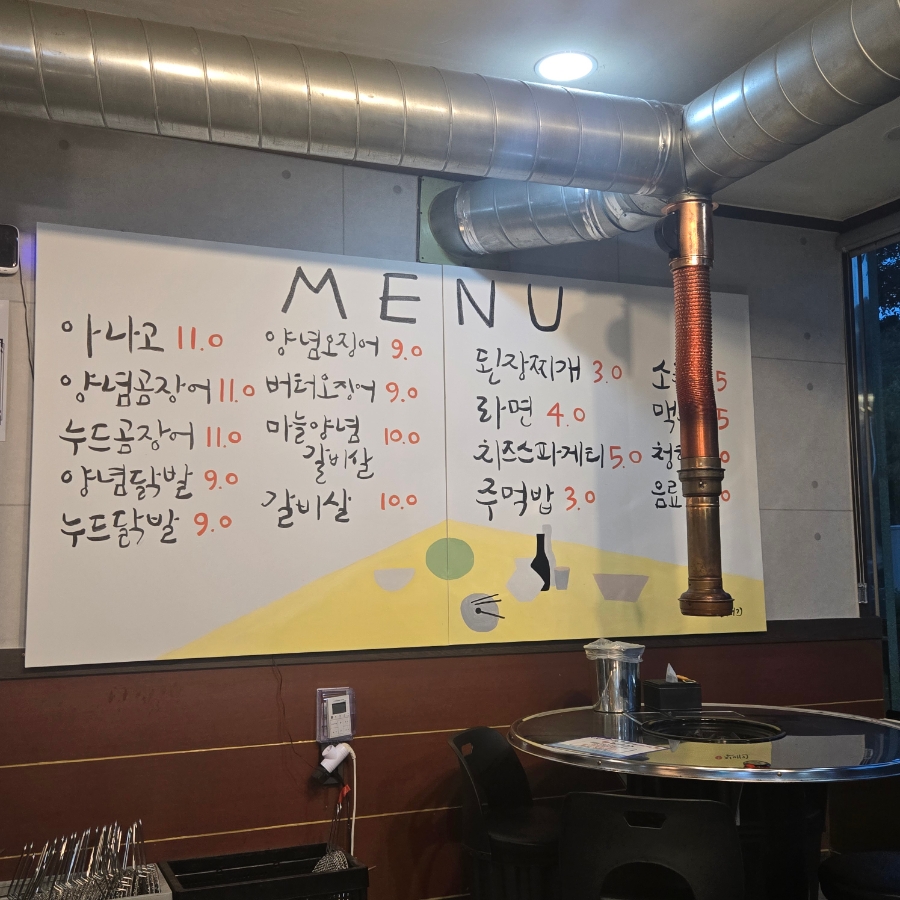 MENU
아나고 11.0
양념곰장어 11.0
누드곰장어 11.0
양념닭발 9.0
누드닭발 9.0
양념오징어 9.0
버터오징어 9.0
마늘양념 10.0
갈비살
갈비살 10.0
된장찌개 3.0
라면 4.0
치즈스파게티 5.0
주먹밥 3.0